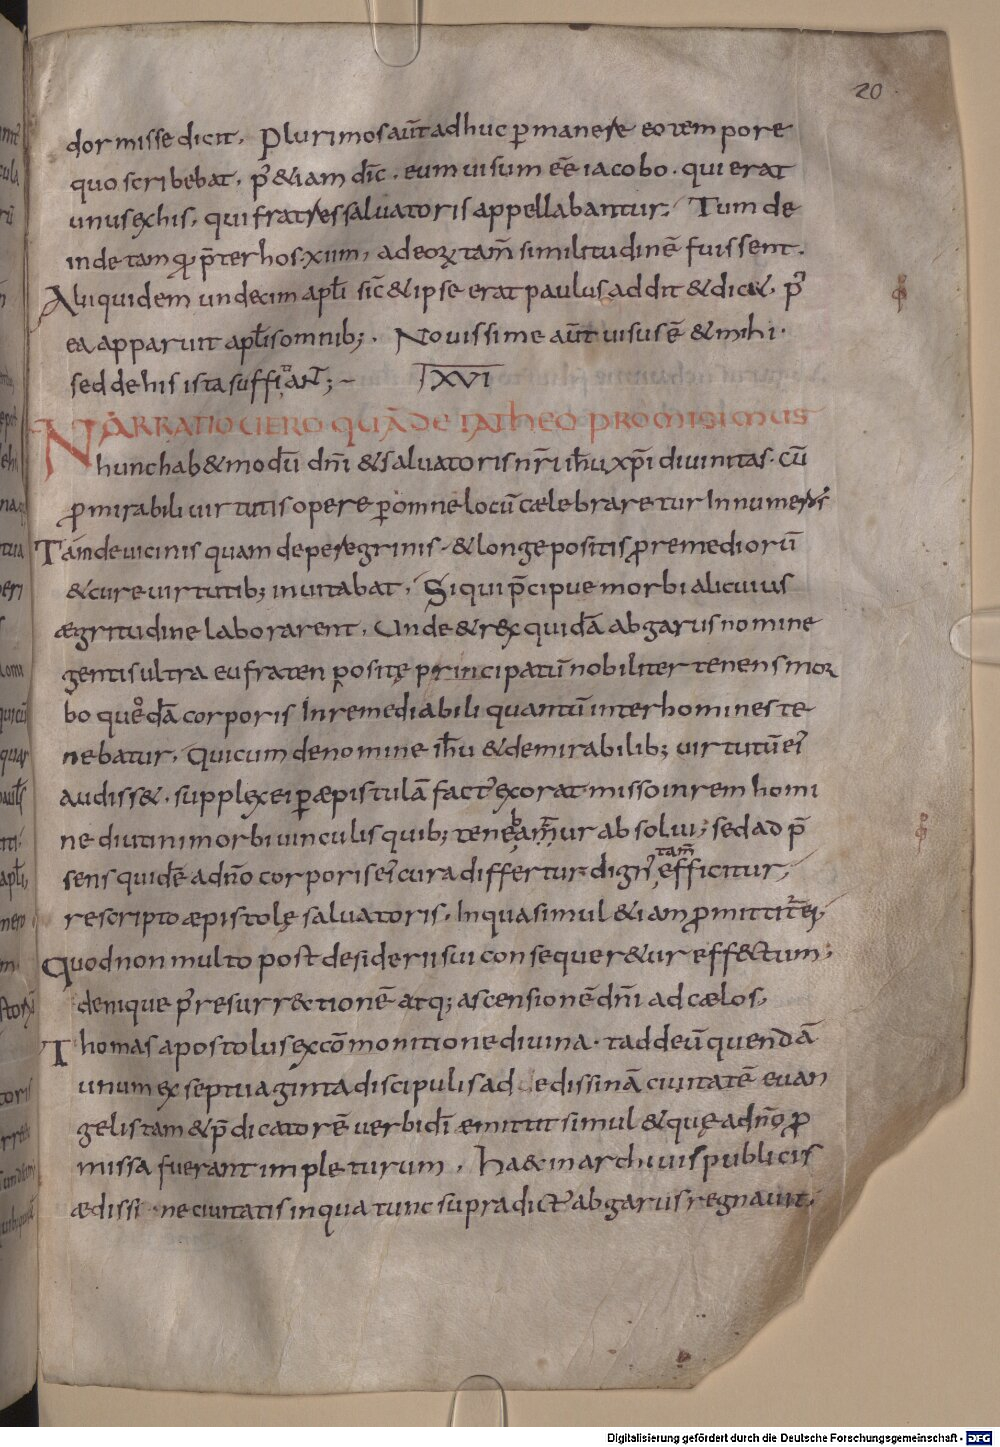 20
dormisse dicit. Plurimos aūt adhuc ꝑmanere eo tempore
quo scribebat. p᷒ & iam dīc. eum uisum eē iacobo. qui erat
unus ex his. qui fratres saluatoris appellabantur. Tum de
inde tamqͣ p̄ter hos .xiim. ad eoꝝ tam̄ similitudinē fuissent.
Alii quidem undecim apƚi sic̄ & ipse erat paulus addit & dic&. p᷒
ea apparuit apƚis omnib;. Nouissime aūt uisus ē & mihi.
sed de his ista suffitiant;~ XVI
NARRATIO UERO QUĀ DE TATHEO PROMISIMUS
hunc hab& modū dn̄i & saluatoris nr̄i ih̄u xp̄i diuinitas. cū
ꝓ mirabili uirtutis opere ꝑ omne locū cælebraretur Innumeros
Tam de uicinis quam de peregrinis. & longe positis ꝓ remediorū
& cure uirtutib; inuitabat. Si qui p̄cipue morbi alicuius
ægritudine laborarent. Unde & rex quidā abgarus nomine
gentis ultra eufraten positę principatū nobiliter tenens mor
bo quodā corporis Inremediabili quantū inter homines te
nebatur. Qui cum de nomine ih̄u & de mirabilib; uirtutū ei᷒
audiss&. supplex ei ꝑ æpistulā fact᷒ exorat misso inrem homi
ne diutini morbi uinculis quib; tenebam̄ur absolui; sed ad p̄
sens quidē a dn̄o corporis ei᷒ cura differtur dign᷒ tam̄ efficitur,
rescripto æpistolę saluatoris. In qua simul & iam ꝓmittit᷒ ei,
Quod non multo post desiderii sui consequer&ur eff&ctum.
denique p᷒ resurr&ctionē atq; ascensionē dn̄i ad cælos,
Thomas apostolus ex cōmonitione diuina. taddeū quendā
unum ex septuaginta discipulis ad edissinā ciuitatē euan
gelistam & p̄dicatorē uerbi dī emittit simul & quę a dn̄o ꝓ
missa fuerant impleturum. Ha&c in archiuis publicis
ædissi ne ciuitatis in qua tunc supra dict᷒ abgarus regnauit.
Digitalisierung gefördert durch die Deutsche Forschungsgemeinschaft - DFG